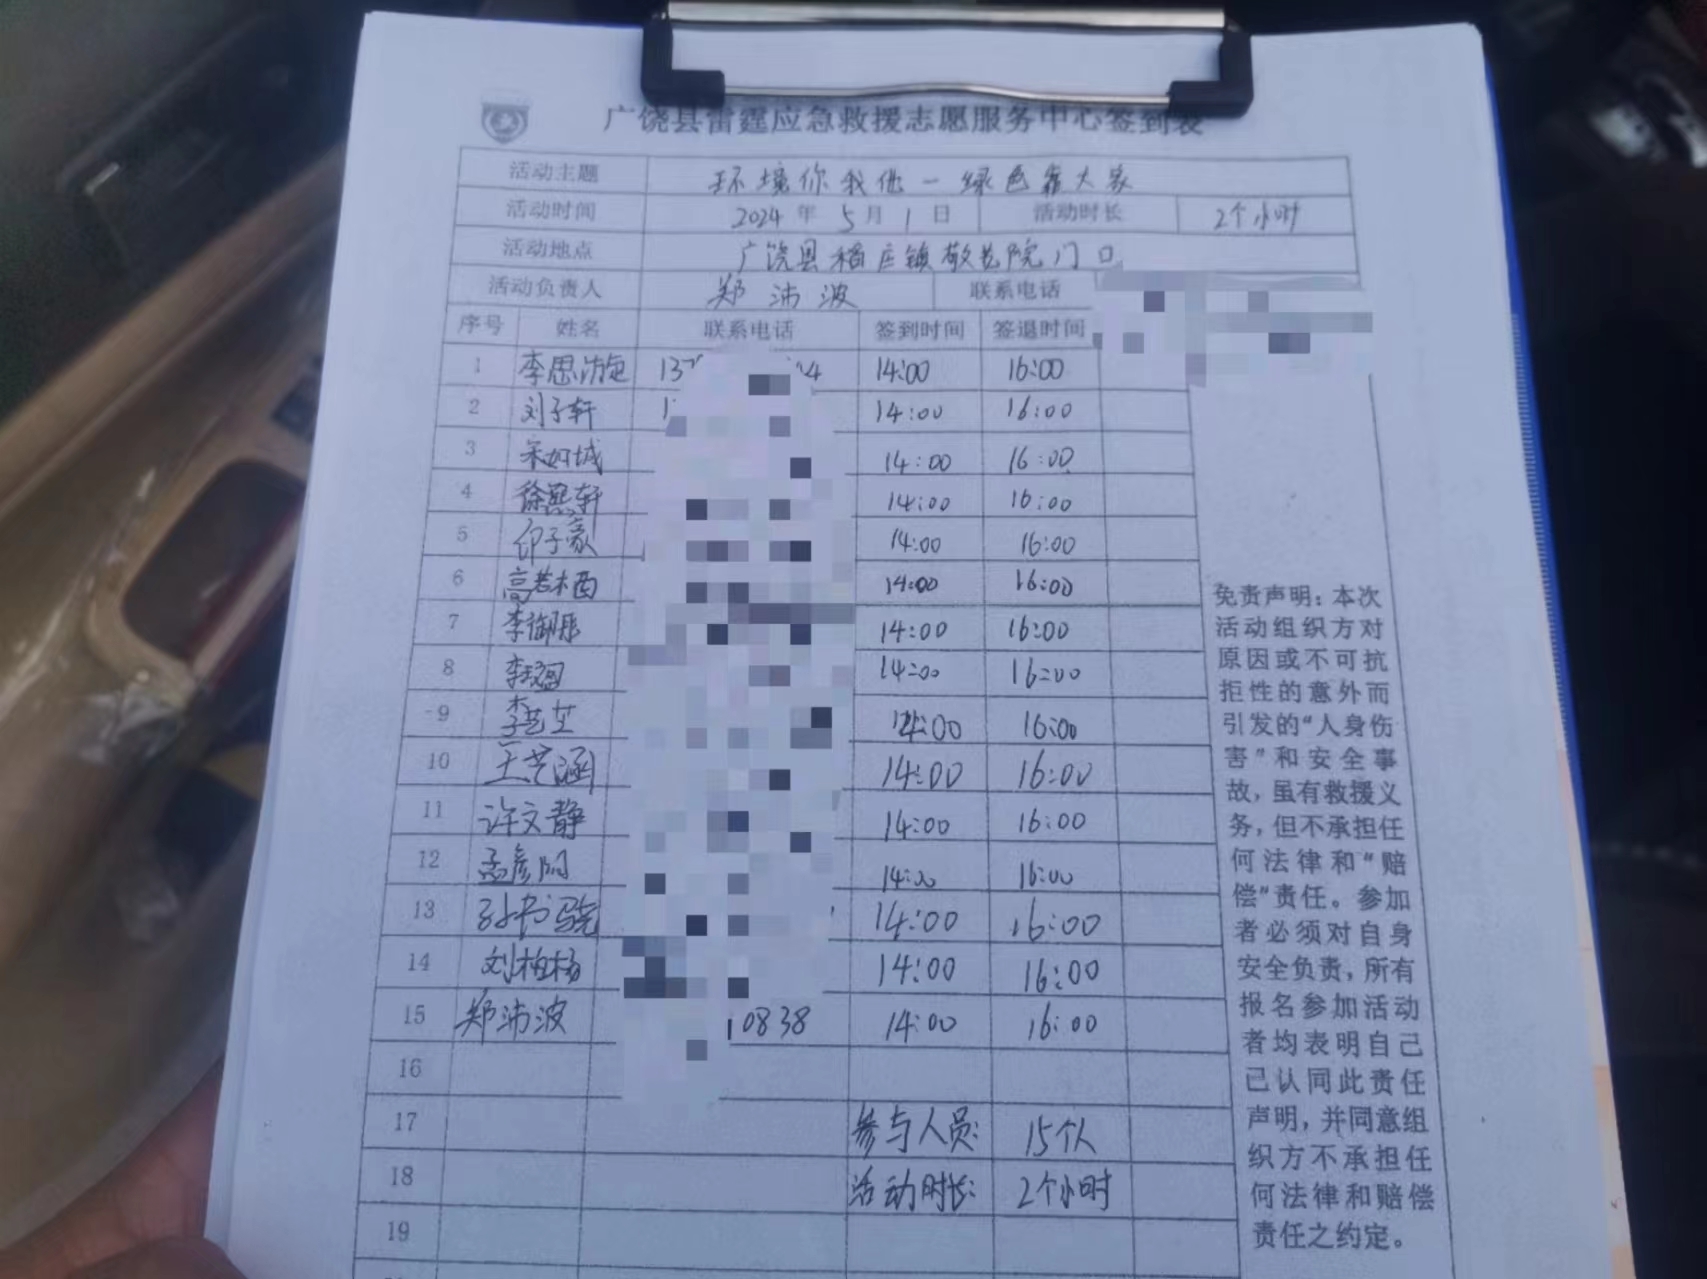 广饶县雷霆应急救援志愿服务中心签到表
活动主题 环境你我他一绿色靠大家
活动时间 2024年5月1日 活动时长 2个小时
活动地点 广饶县稻庄镇敬老院门口
活动负责人 郑沛波 联系电话
序号 姓名 联系电话 签到时间 签退时间
1 李思漩 14:00 16:00
2 刘子轩 14:00 16:00
3 宋如城 14:00 16:00
4 徐熙轩 14:00 16:00
5 子豪 14:00 16:00
6 高若栖 14:00 16:00
7 李 14:00 16:00
8 李 14:00 16:00
9 李艺芷 14:00 16:00
10 王艺涵 14:00 16:00
11 许文静 14:00 16:00
12 孟彦 14:00 16:00
13 孙书骁 14:00 16:00
14 刘柏杨 14:00 16:00
15 郑沛波 0838 14:00 16:00
16
17 参与人员: 15个人
18 活动时长: 2个小时
19
免责声明：本次
活动组织方对
原因或不可抗
拒性的意外而
引发的“人身伤
害”和安全事
故，虽有救援义
务，但不承担任
何法律和“赔
偿”责任。参加
者必须对自身
安全负责，所有
报名参加活动
者均表明自己
已认同此责任
声明，并同意组
织方不承担任
何法律和赔偿
责任之约定。